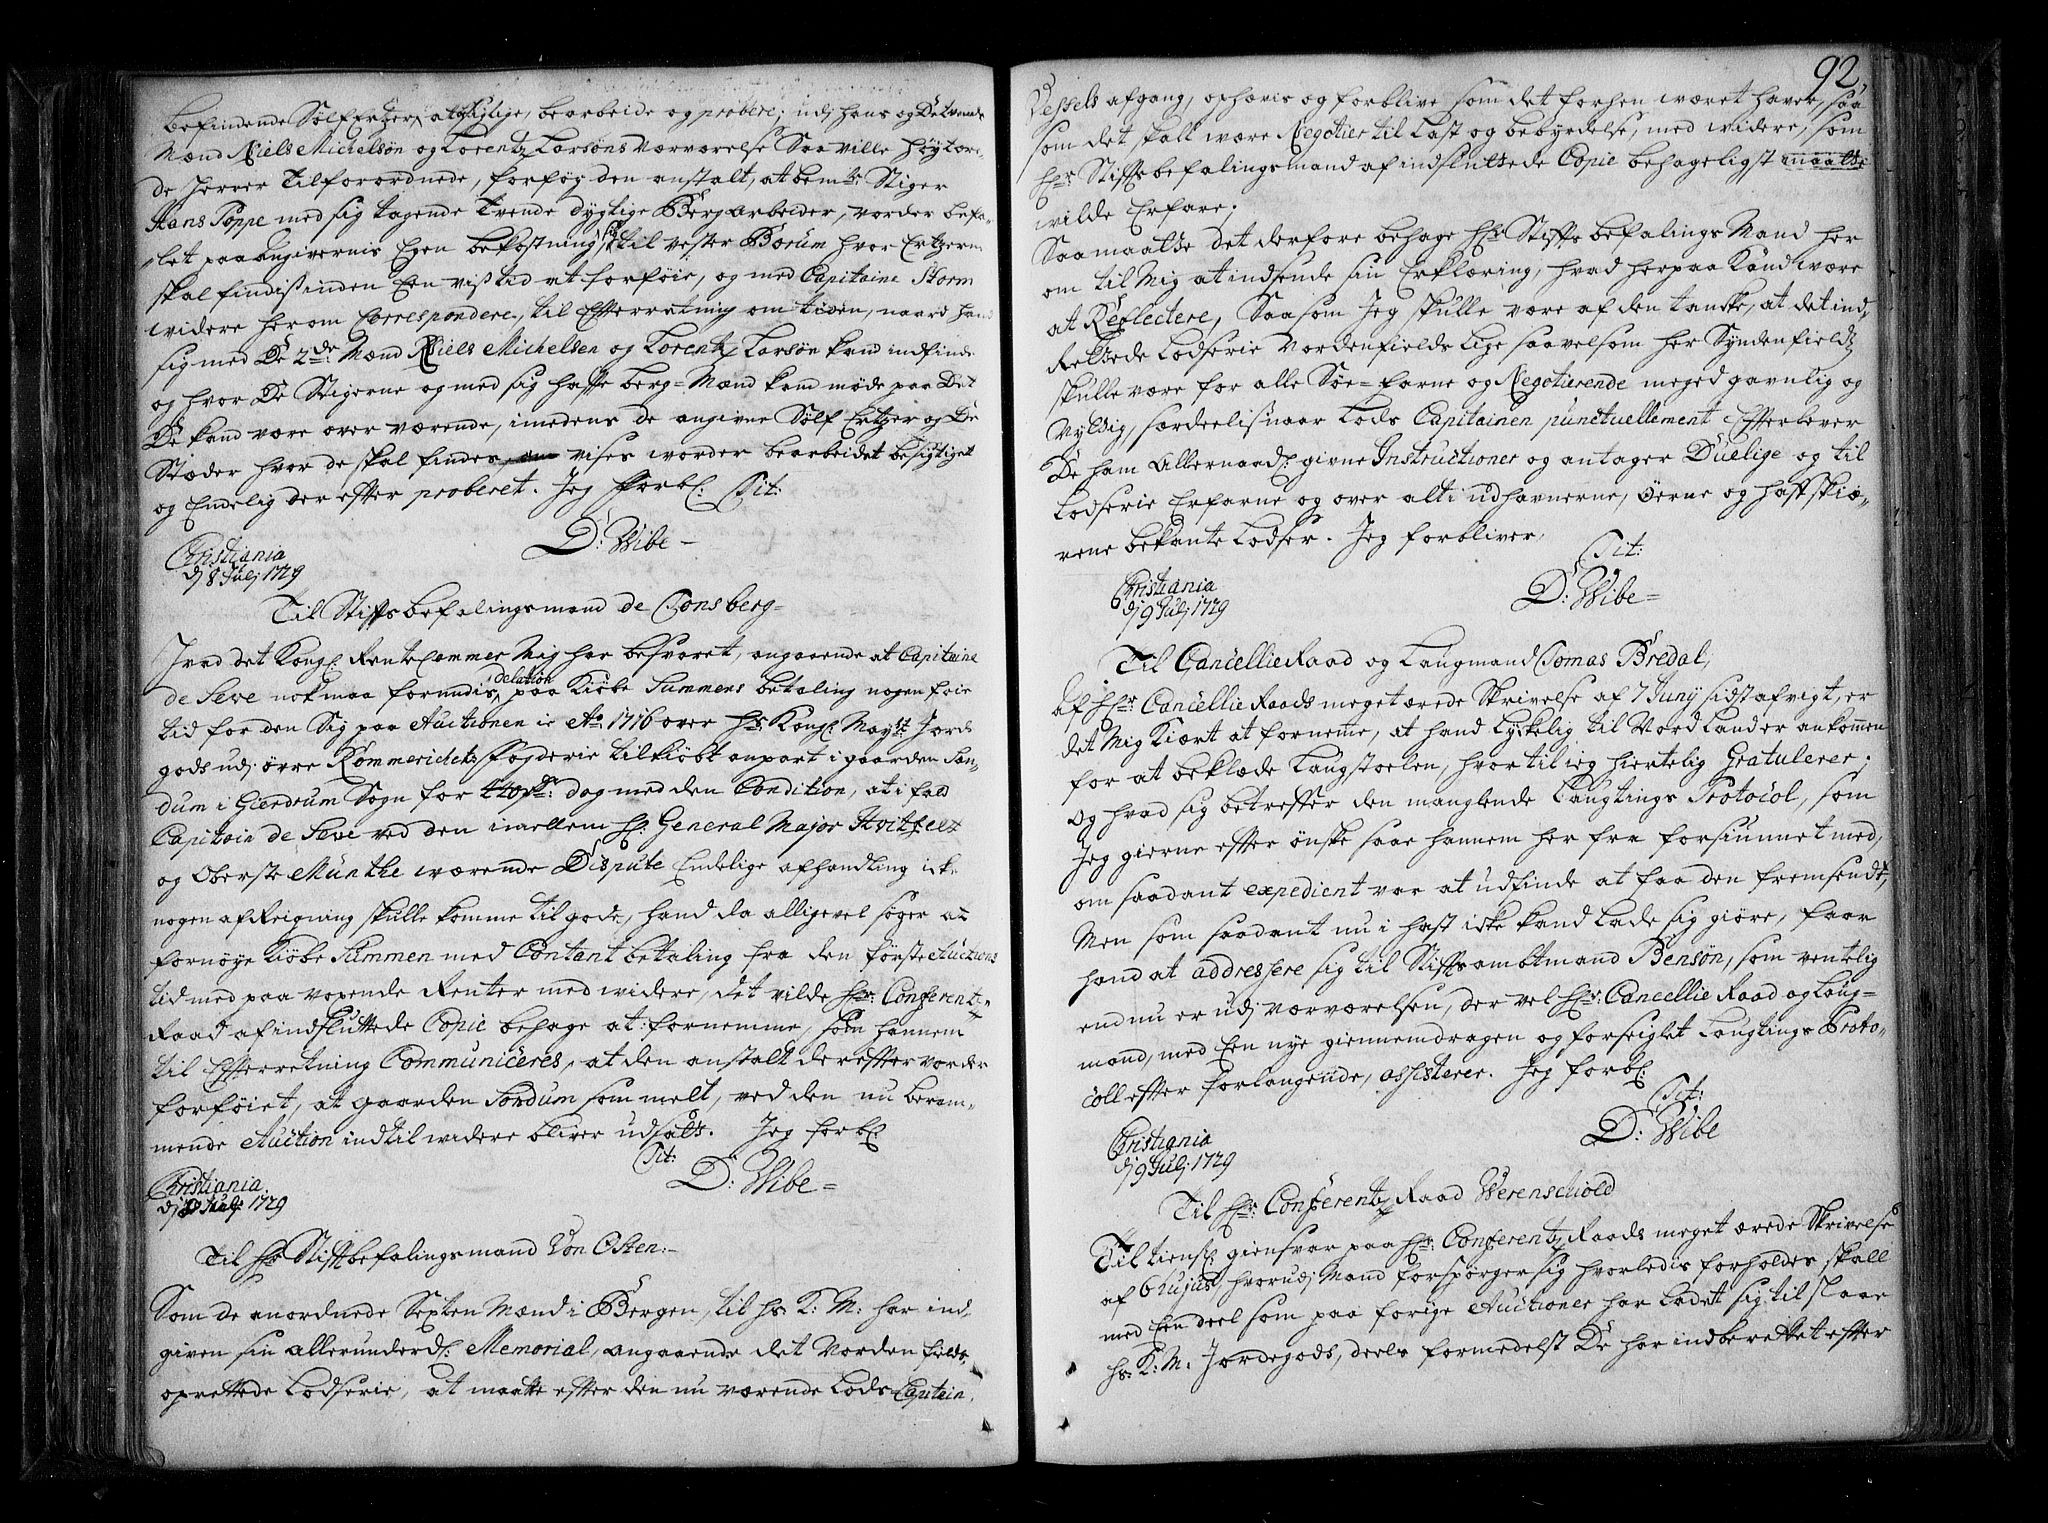 befindende Sølf Ertzer, at søge, bearbeide og probere; udj hans og De tvende
Mænd Niels Michelsøn og Lorentz Larsøns værværelse Saa ville høytære-
de Herrer Tilforordnede, forføy den anstalt, at bem:te Stiger
Hans Poppe med sig tagende Tvende dygtige Bergarbeider, vorder befa-
let paa Angivernis Egen bekostning, sig til vester Borum hvor Ertzerne
skal findis inden Een viss tid at forføie, og med Capitaine Storm
videre herom Correspondere, til Efterretning om tiden, naar hand
sig med De 2de Mænd Niels Michelsen og Lorentz Larsøn kand indfinde
og hvor De Stigerne og med sig hafte berg-Mænd kam møde paa Det
De kand være over værende, imedens de angivne Sølf Ertzer og De
Stæder hvor de skal findes, vises vorder bearbeidet besigtiget
og Endelig der efter proberet. Jeg Forbl: Tit:
D: Wibe -
Christiania
dj 8 Julj 1729
Til Stiftsbefalingsmand de Tonsberg=
Hvad det Kongl: RenteCammer Mig har besvaret, angaaende at Capitaine
de Seve nok maa forundis, delation paa Kiøbe Summens betaling nogen foie
tid for den Sig paa Auctionen in Ao 1716 over Hs Kongl: Mayst: Jorde
gods udj øvre Rommerichets Fogderie tilkiøbt anpart i gaarden San-
dum i Gierdrum Sogn for 440 rdr: dog med den Condition, at i fald
Capitain de Seve ved den imellem H: General Major Hvitfelt
og Oberste Munthe værende Dispute Endelige afhandling ick-
nogen afReigning skulle komme til gode, hand da alligevel søger at
fornøye Kiøbe Summen med Contant betaling fra den første Auctions
tid med paa voxende Renter med widere, det vilde Hr: Conferentz-
Raad af indsluttede Copie behage at fornemme, som hannem
til Efterretning Communiceres, at den anstalt derefter vorder
forføiet, at gaarden Sandum som melt, ved den nu beram-
mende Auction indtil widere bliver udsadt. Jeg forbl:
Tit:
D: Wibe=
Christiania
dj Julj 1729
Til Hr Stiftbefalingsmand Von Osten:-
Som de anordnede Sexten Mænd i Bergen, til hs: K: M: har ind-
given sin allerunderd: Memorial, angaaende det Norden fields
oprettede Lodserie, at maatte efter den nu værende Lods Captain
92
Vessels afgang, ophævis og forblive som det forhen wæret haver, saa
som det skall wære Negotien til Last og bebyrdelse, med widere, som
Hr: Stiftsbefalingsmand af indsluttede Copie behageligst maatte
wilde Erfare;
Saa maatte det derfore behage Hr: Stiftsbefalings Mand her
om til Mig at indsende sin Erklæring, hvad herpaa Kand være
at Reflectere, Saasom Jeg skulle være af den tancke, at det ind-
Rettede Lodserie Nordenfields lige saavelsom her Syndenfields
skulle være for alle Søe-farne og Negotierende meged gavnlig og
Nyttig, særdeelis naar Lods Capitainen punctuellement Efterlever
De ham Allernaad: givne Instructioner og antager Duelige og til
Lodserie Erfarne og over alt i udhavnerne, øerne og hafskiæ-
rene bekante Lodser. Jeg forbliver,
Tit:
D: Wibe=
Christiania
dj 9 Julj 1729
Til CancellieRaad og Laugmand Tomas Bredal,
Af Hr: Cancellie Raads meget ærede Skrivelse af 7 Juny sidst afvigt, er
det Mig Kiært at fornemme, at hand Lyckelig til Nordlander ankommen
for at beklæde Laugstoelen, hvortil ieg hiertelig Gratulerer;
Og hvad sig betreffer den manglende Laugtings Protocol, som
Jeg gierne efter ønske saae hannem her fra forsiunnet med,
om saadant expedient var at udfinde at faa den fremsendt,
Men som saadant nu i hast icke kand lade sig giøre, faar
hand at addressere sig til Stiftsambtmand Bensøn, som ventelig
endnu er udj værværelsen, der vel Hr: Cancellie Raad og Laug-
mand, med Een nye giennemdragen og forseiglet Laugtings Proto-
coll efter forlangende, assisterer. Jeg forbl:
Tit:
D: Wibe
Christiania
dj 9 Julj 1729
Til Hr: Conferentz Raad Werenschiold
Til tiensl: giensvar paa Hr: Conferentz Raads meget ærede Skrivelse
af 6 hujus hvorudj Mand forspørger sig hvorledis forholdes skall
med Een deel som paa forige Auctioner har ladet sig til slaae
hs: K: M: Jordegods, deels formedelst De har indberettet efter